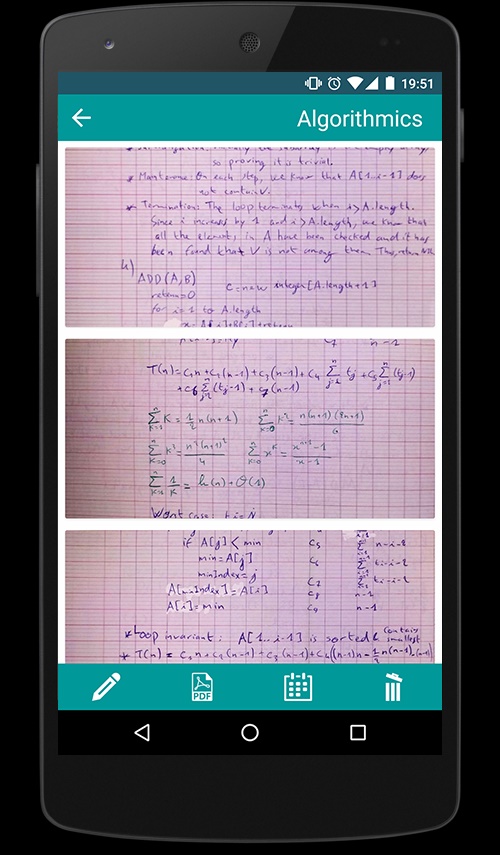 19:51
Algorithmics
so proving it is trivial.
* Maintenance: On each step, we know that A[1..i-1] does
not contain V.
* Termination: The loop terminates when i > A.length.
Since i increases by 1 and i > A.length, we know that
all the elements in A have been checked and it has
been found that V is not among them. Thus, return NIL
4)
ADD(A,B)
C = new integer [A.length+1]
return=0
for i=1 to A.length
n-1
T(n) = c₁n + c₂(n-1) + c₃(n-1) + c₄ ∑ⁿⱼ₌₂ tⱼ + c₅ ∑ⁿⱼ₌₂ (tⱼ-1)
+ c₆ ∑ⁿⱼ₌₂ (tⱼ-1) + c₇(n-1)
∑ⁿₖ₌₁ K = 1/2 n(n+1) ∑ⁿₖ₌₀ k² = n(n+1)(2n+1)/6
∑ⁿₖ₌₀ k³ = n²(n+1)²/4 ∑ⁿₖ₌₀ xᵏ = xⁿ⁺¹-1/x-1
∑ⁿₖ₌₁ 1/K = ln(n) + O(1)
Worst case:
if A[j] < min c₅
min = A[j] c₆
minIndex = j c₇
A[minIndex] = A[i] c₈ n-1
A[i] = min c₉ n-1
* Loop invariant: A[1..i-1] is sorted & contains smallest
* T(n) = c₁n + c₂(n-1) + c₃(n-1) + c₄
PDF